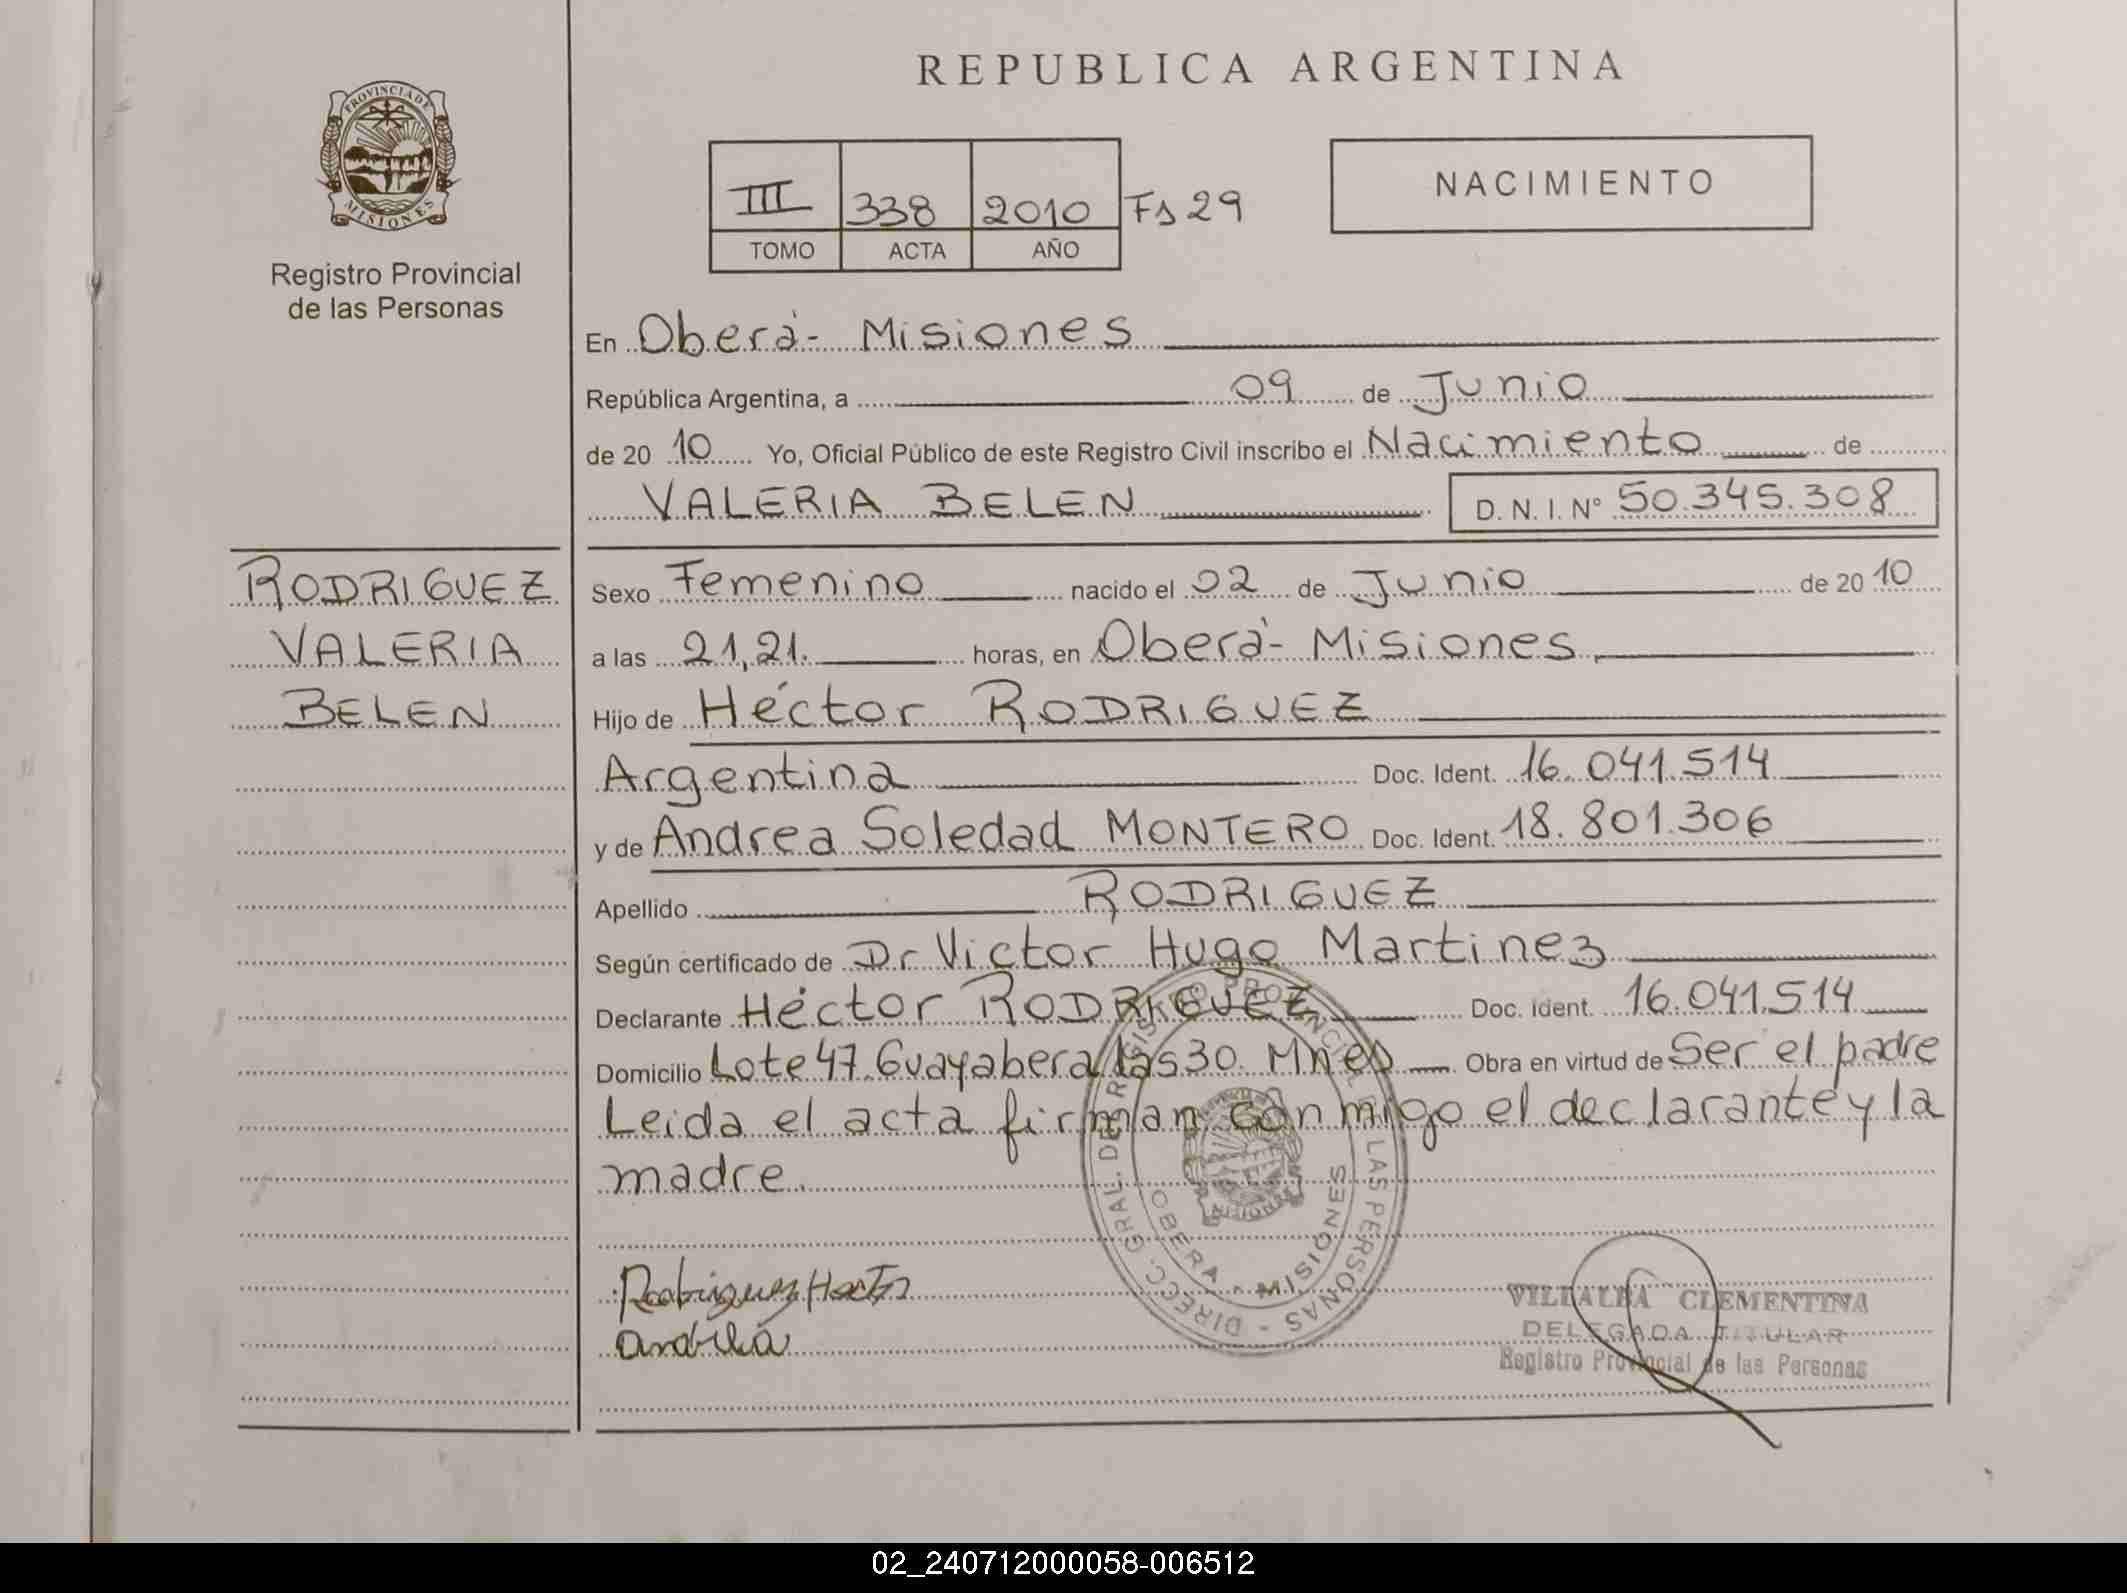 REPUBLICA ARGENTINA
PROVINCIA DE MISIONES
Registro Provincial
de las Personas
III 338 2010 Fs 29
TOMO ACTA AÑO
NACIMIENTO
En Oberá - Misiones
República Argentina, a 09 de Junio
de 2010 Yo, Oficial Público de este Registro Civil inscribo el Nacimiento de
VALERIA BELEN D. N. I. N° 50.345.308
RODRIGUEZ
VALERIA
BELEN
Sexo Femenino nacido el 02 de Junio de 2010
a las 21,21. horas, en Oberá - Misiones
Hijo de Héctor RODRIGUEZ
Argentina Doc. Ident. 16.041.514
y de Andrea Soledad MONTERO Doc. Ident. 18.801.306
Apellido RODRIGUEZ
Según certificado de Dr Victor Hugo Martinez
Declarante Héctor RODRIGUEZ Doc. Ident. 16.041.514
Domicilio Lote 47. Guayabera las 30. Mnes Obra en virtud de Ser el padre
Leida el acta firman conmigo el declarante y la
madre.
DIRECC. GRAL. DE REGISTRO PROVINCIAL DE LAS PERSONAS -
OBERA - MISIONES
Rodriguez Hector
VILLALBA CLEMENTINA
DELEGADA TITULAR
Registro Provincial de las Personas
02_240712000058-006512